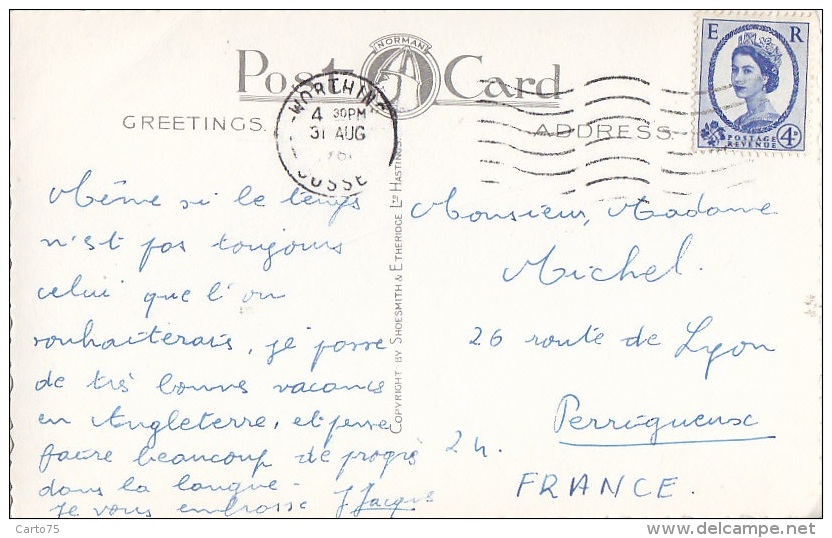 NORMAN
Post Card
WORTHING
4 30PM
31 AUG
SUSSE
E R
POSTAGE
REVENUE
4D
GREETINGS.
ADDRESS
Même si le temps
n'est pas toujours
celui que l'on
souhaiterais, je passe
de très bonnes vacances
en Angleterre, et pense
faire beaucoup de progrès
dans la langue.
Je vous embrasse J. Jacques
COPYRIGHT BY SHOESMITH & ETHERIDGE LTD HASTINGS
Monsieur, Madame
Michel.
26 route de Lyon
Perrigueux
24.
FRANCE.
Carto75
delcampe.net